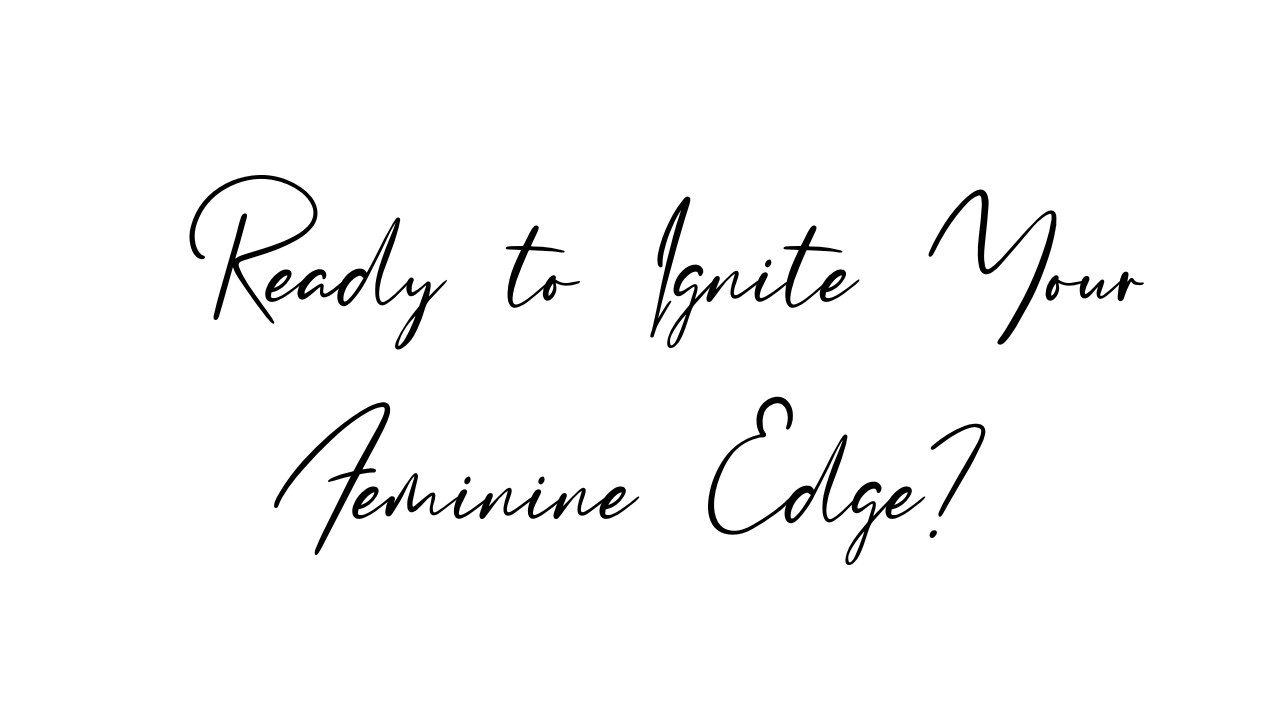 Ready to Ignite Your
Feminine Edge?